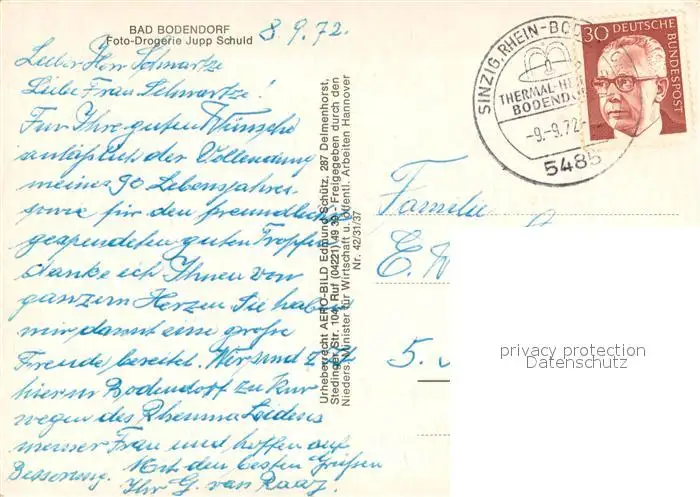 BAD BODENDORF
Foto-Drogerie Jupp Schuld
8.9.72.
Lieber Herr Schwartze
Liebe Frau Schwartze!
Für Ihre guten Wünsche
anläßlich der Vollendung
meines 90 Lebensjahres
sowie für den freundlich
gespendeten guten Tropfen
danke ich Ihnen von
ganzem Herzen Sie haben
mir damit eine große
Freude bereitet. Wir sind z. Zt
hier in Bodendorf zu Kur
wegen des Rheuma Leidens
meiner Frau und hoffen auf
Besserung. Mit den besten Grüßen
Ihr G. van Raay.
Urheberrecht AERO-BILD Edmund Schütz, 287 Delmenhorst,
Stedinger Str. 104, Ruf (04221) 49 39 - Freigegeben durch den
Nieders. Minister für Wirtschaft u. öffentl. Arbeiten Hannover
Nr. 42/31/37
SINZIG, RHEIN-BO
THERMAL-HE
BODENDO
-9.-9.72
5485
30 DEUTSCHE
BUNDESPOST
Familie
E.
5.
privacy protection
Datenschutz